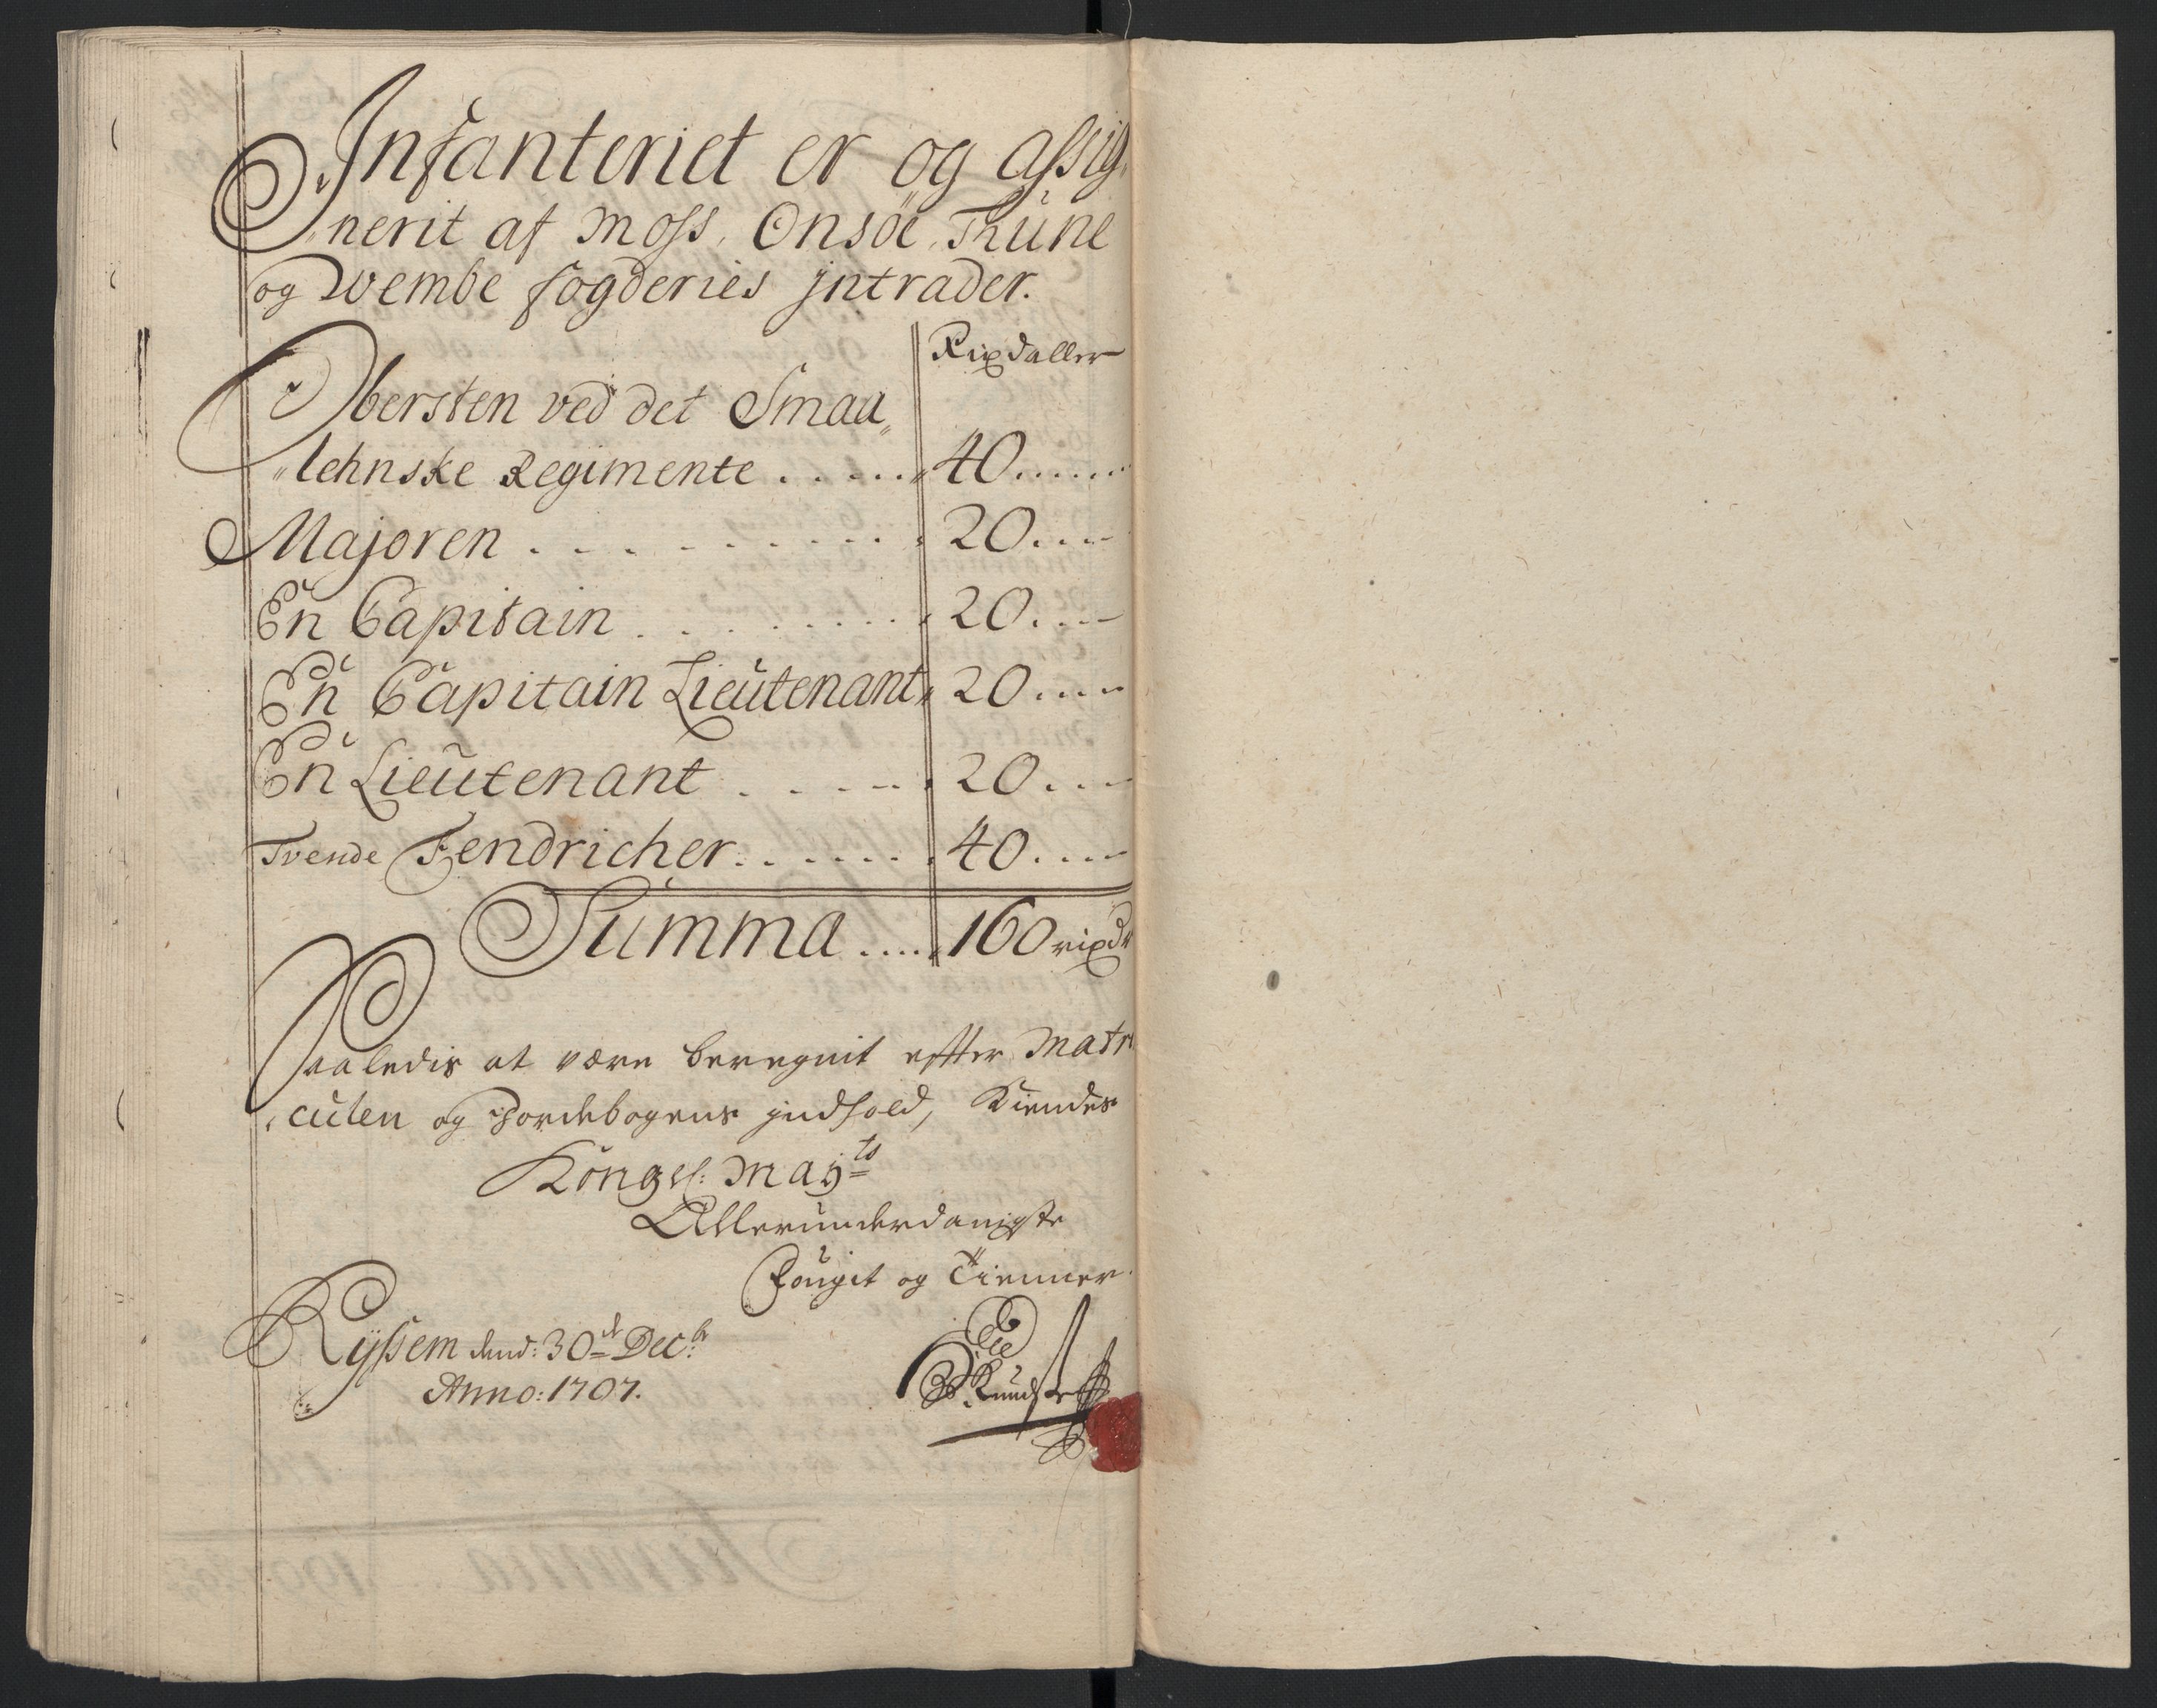 Infanteriet er og assig
nerit af Moss, Onsöe, Thüne
og Wembe fogderies jntrader.
Rixdaller
Obersten ved det Smaa„
„lehnske Regimente . . . . . 40......
Majoren . . . . . . . . . 20....
En Capitain . . . . . . . . 20....
En Capitain Lieütenant, 20....
En Lieütenant . . . . . 20....
Tvende Fendricher. . . . . . 40....
Summa ..... 160 rixdr
Saaledis at være beregnit effter Matri
culen og Jordebogens jndhold, Kiendes
Kongel: May:ts
Allerunderdanigste
Fougit og Tienner
Ryssem dend: 30de Decbr:
Anno: 1707.